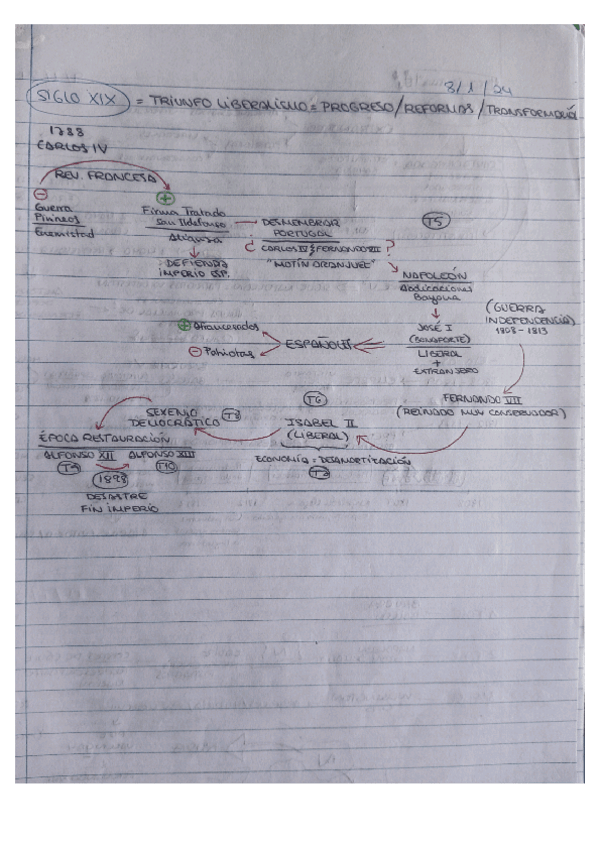 8/1/24
SIGLO XIX = TRIUNFO LIBERALISMO = PROGRESO/REFORMAS/TRANSFORMACIÓN
1788
CARLOS IV
REV. FRANCESA
Guerra
Pirineos
Enemistad
Firma Tratado
San Ildefonso
Alianza
DEFIENDA
IMPERIO ESP.
DESMEMBRAR
PORTUGAL
¿ CARLOS IV y FERNANDO VII ?
"MOTÍN ARANJUEZ"
T5
NAPOLEÓN
Abdicaciones
Bayona
(GUERRA
INDEPENDENCIA)
1808-1813
JOSÉ I
(BONAPARTE)
LIBERAL
+
EXTRANJERO
ESPAÑOLES
+ Afrancesados
- Patriotas
FERNANDO VII
(REINADO MUY CONSERVADOR)
T6
ISABEL II
(LIBERAL)
ECONOMÍA = DESAMORTIZACIÓN
SEXENIO
DEMOCRÁTICO
T8
ÉPOCA RESTAURACIÓN
ALFONSO XII ALFONSO XIII
T9 T10
1898
DESASTRE
FIN IMPERIO